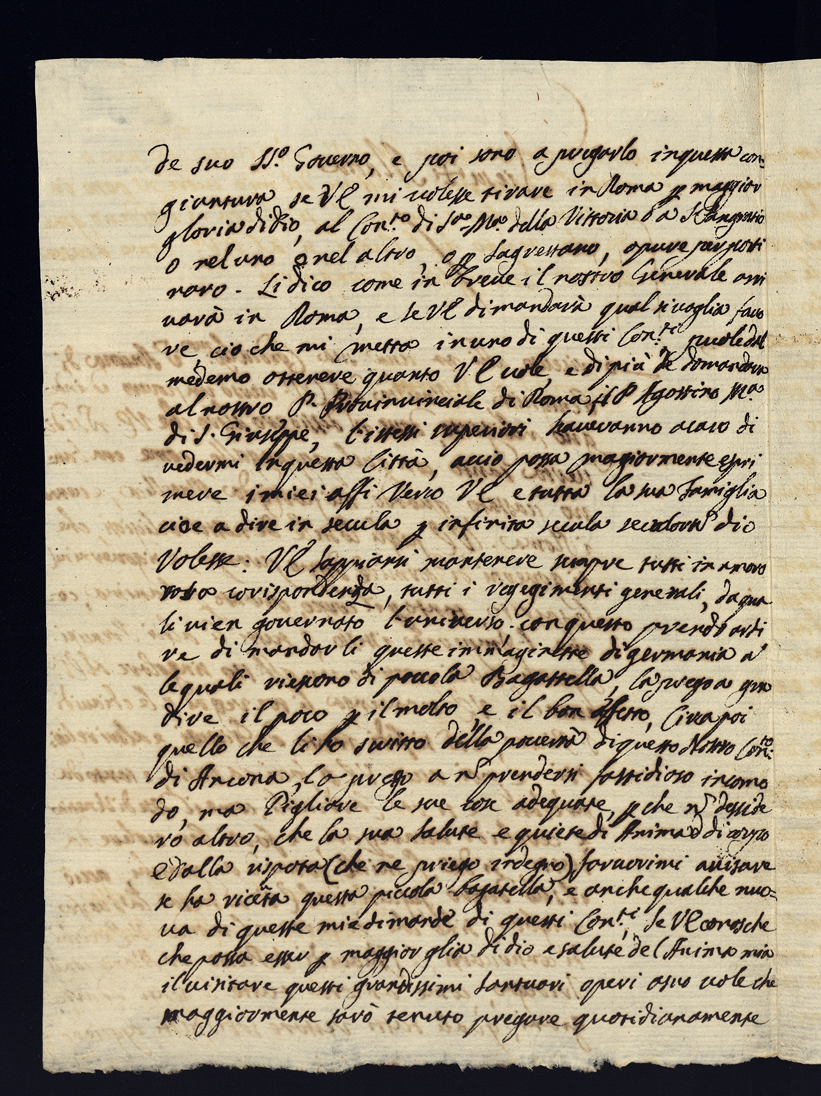 de suo SS.º Governo, e poi sono a pregarlo in questa con=
giuntura, se VE mi volesse tirare in Roma p maggior
gloria di dio, al Con.to di S.ta M.a della Vittoria o a S. Pangratio
o nel uno o nel altro, o p Sagrestano, opure per porti
naro. Li dico come in breve il nostro Generale arri
varà in Roma, e se VE dimandarà qual si voglia favo
re, cio che mi metta in uno di questi Con.ti puole dal
medemo ottenere quanto VE vole, e di più se domandara
al nostro P. Provinvinciale di Roma, il P Agostino M.a
di S. Giuseppe, l'istessi superiori haveranno acaro di
vedermi in questa Città, accio possa magiormente espri
mere i miei affi verso VE e tutta la sua Famiglia
cioe a dire in secula p infinita secula seculorum dio
Volesse: VE sappiansi mantenere sempre tutti in amoro
corispondenza, tutti i regegimenti generali, da qua
li vien governato l'universo. con questo prendo ardi
re di mandar li queste immaginette di germania a
le quali vieneno di piccola Bagattella, la prego a gra
dire il poco p il molto, e il bon affetto, Circa poi
quello che li ho scritto della povertà di questo Nostro Con.to
di Ancona, la prego a n prendersi fastidioso incomo
do, ma Pigliare le sue cose adequate, p che n desside
ro altro, che la sua salute e quiete di Anima e di corpo
e dalla risposta (che ne priego indegno) favorirmi avisare
se ha ricēta questa piccola bagatella, e anche qualche nuo=
va di queste mie dimande di questi Con.ti se VE conosche
che possa esser p maggior glia di dio e salute del Anima mia
il visitare questi grandissimi santuari operi asuo vole che
maggiormente sarò tenuto pregare quotidianamente